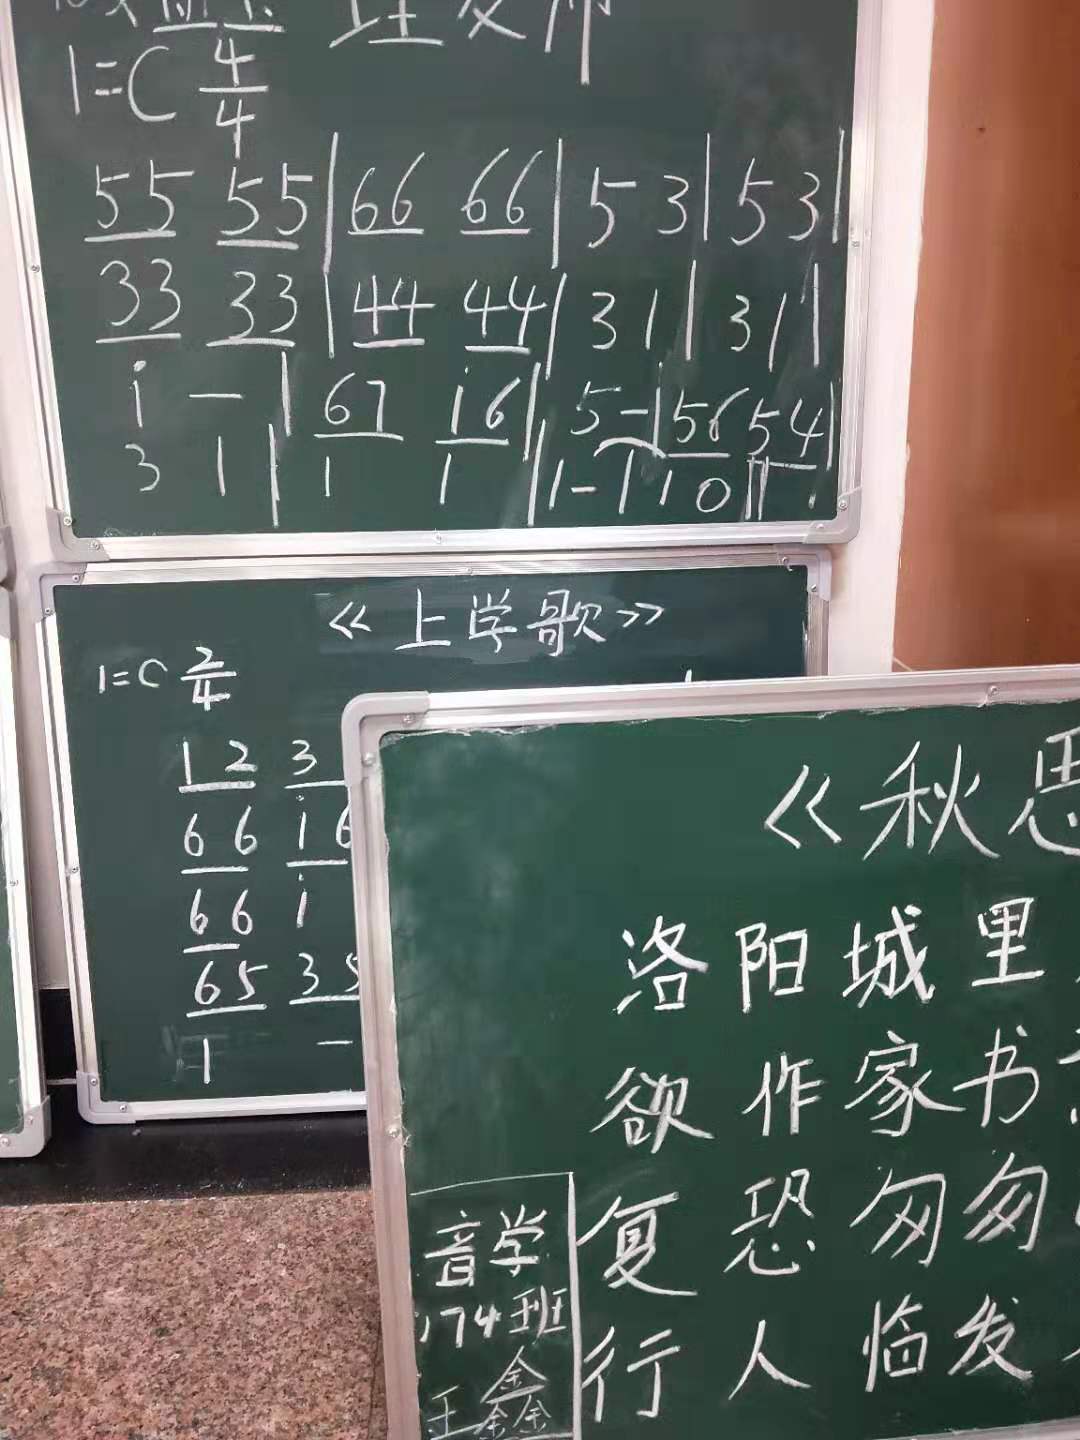 理发师
1=C 4/4
55 55 | 66 66 | 5 3 | 5 3 |
33 33 | 44 44 | 3 1 | 3 1 |
i — | 67 i6 | 5 - | 56 54 |
3 1 | 1 1 | 1 - | 1 0 ||
《上学歌》
1=C 2/4
12 3
66 i6
66 i
65 35
1 —
《秋思
洛阳城里
欲作家书
复恐匆匆
行人临发
音学
174班
王鑫